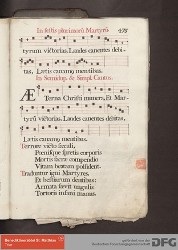 In festis plurimorũ Martyrũ
tyrum victorias. Laudes canentes debi-
tas, Lætis canamus mentibus.
In Semidup. & Simpl. Cantus.
ÆTerna Christi munera, Et Mar-
tyrũ victorias, Laudes canentes debitas,
Lætis canamus mentibus.
Terrore victo sæculi,
Pœnisque spretis corporis
Mortis sacræ compendio
Vitam beatam possident.
Traduntur igni Martyres,
Et bestiarum dentibus:
Armata sævit ungulis
Tortoris insani manus.
DFG